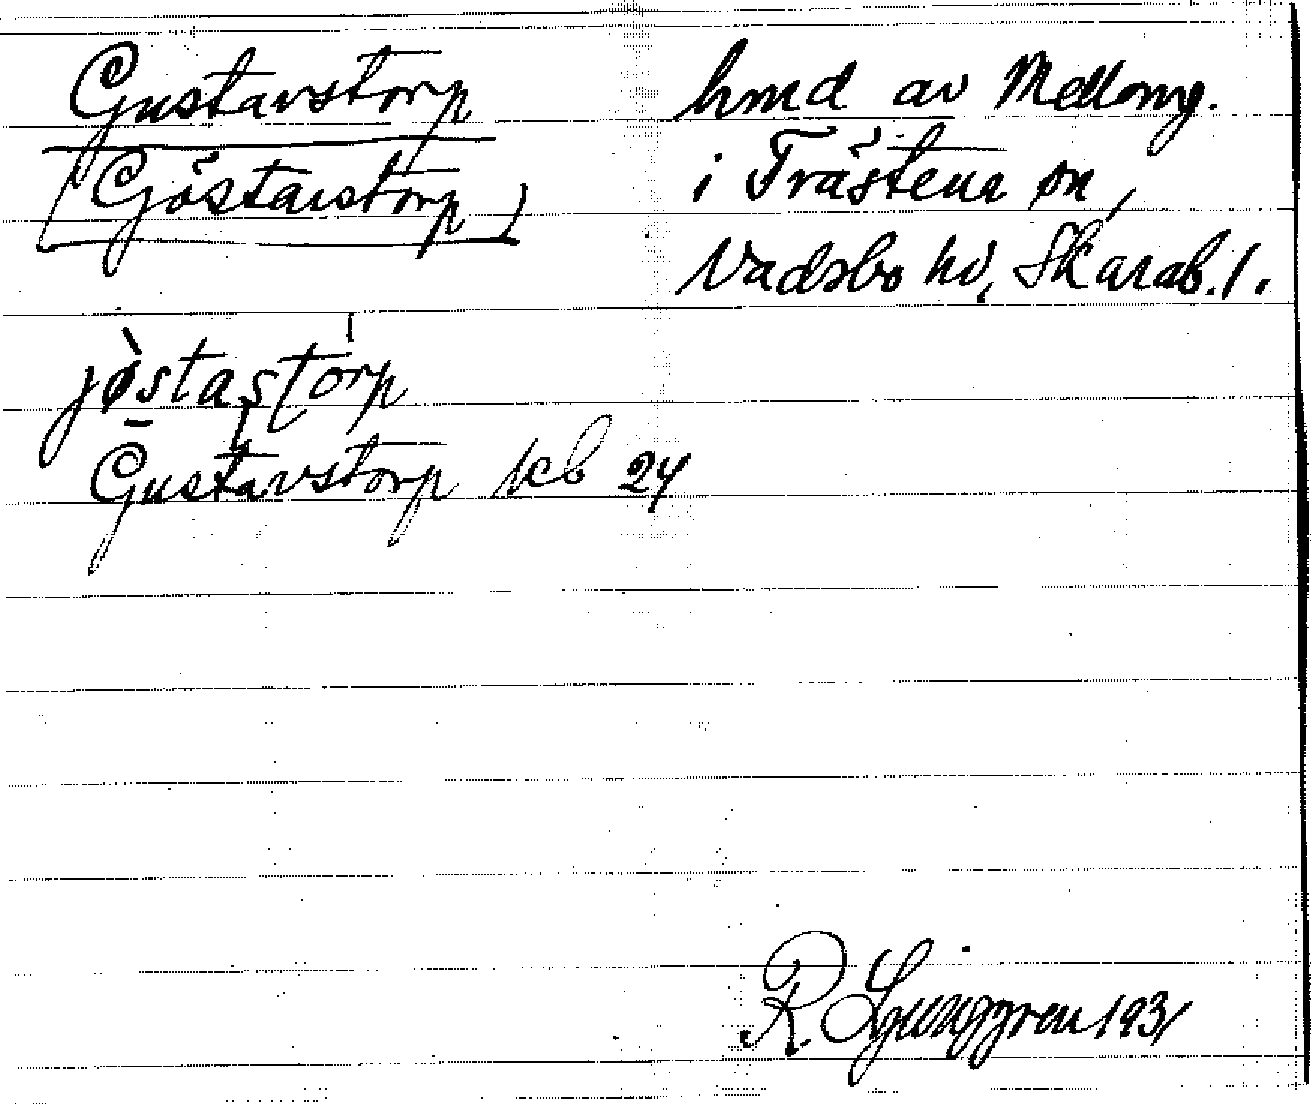 Gustavstorp
(Göstavstorp)
hmd av Mellomg.
i Trästena sn,
Vadsbo hd, Skarab. l.
jøstastorp
Gustavstorp kb 24
R. Ljunggren 1931